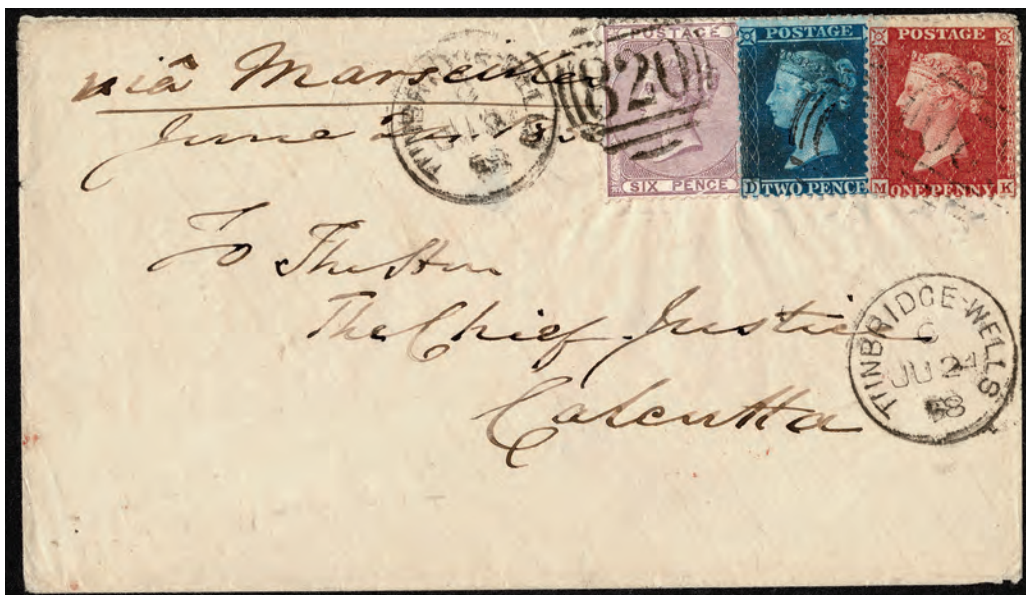 viâ Marseilles
June 24
To The Hon
The Chief Justice
Calcutta
POSTAGE
SIX PENCE
820
POSTAGE
D TWO PENCE
POSTAGE
M ONE PENNY K
TUNBRIDGE-WELLS
TUNBRIDGE-WELLS
C
JU 24
58